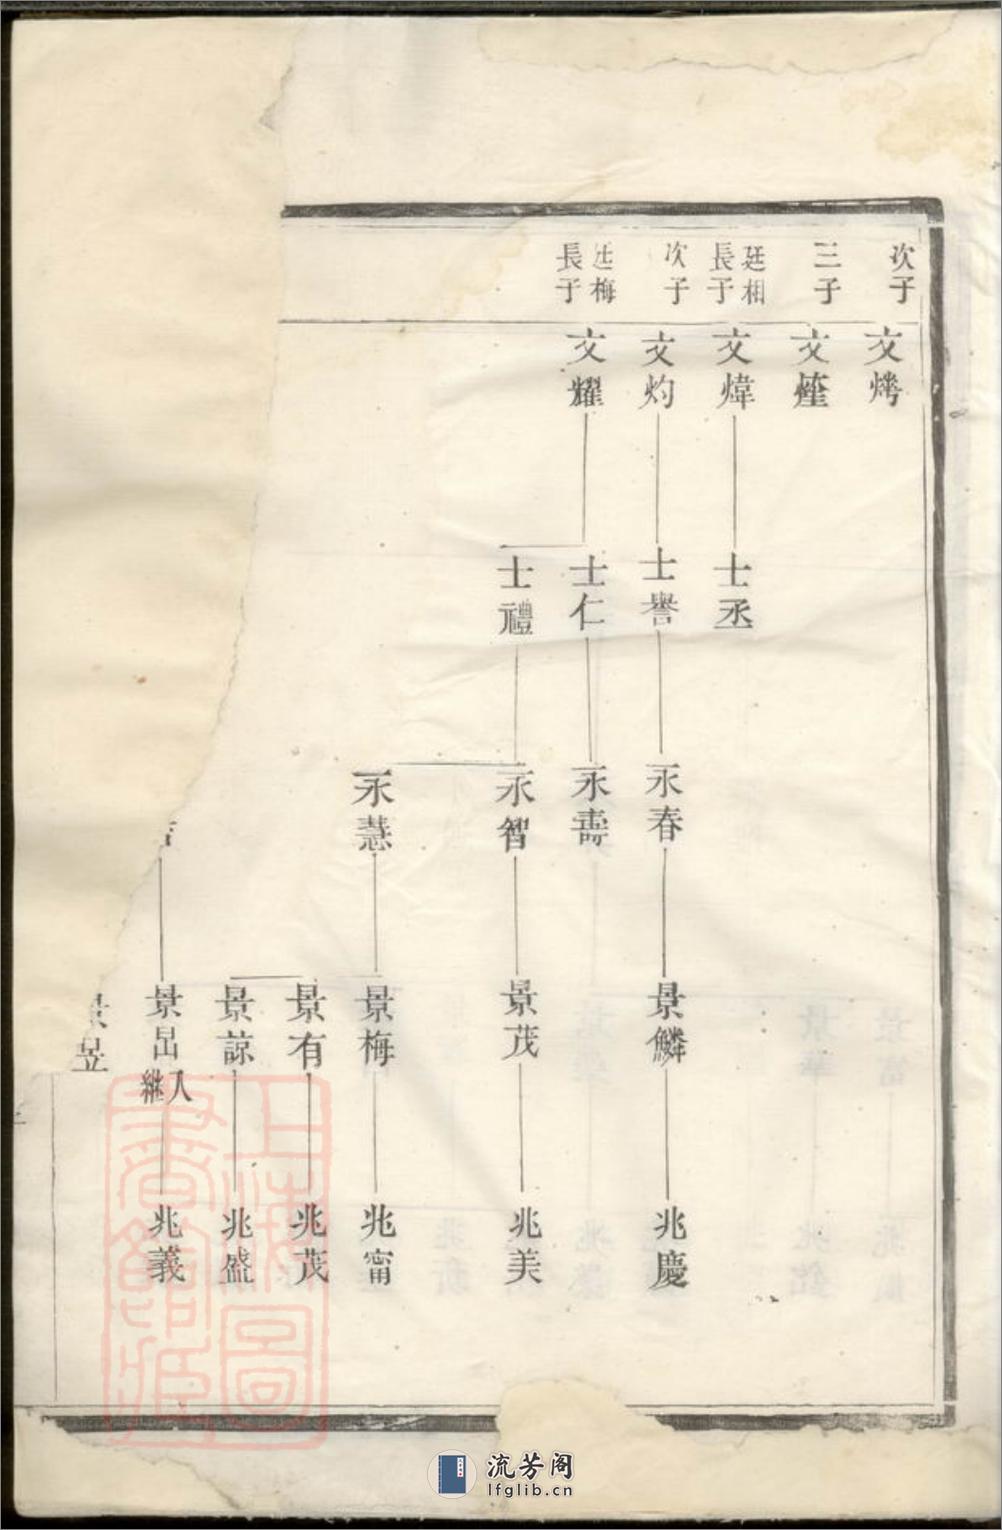 次子
三子
廷相
長子
次子
廷梅
長子
文㶿
文煒
文灼
文耀
士丞
士譽
士仁
士禮
永春
永壽
永智
永慧
景鱗
景茂
景梅
景有
景諒
景昌
入繼
景昱
兆慶
兆美
兆甯
兆茂
兆盛
兆義
上海圖書館藏
流芳阁
lfglib.cn